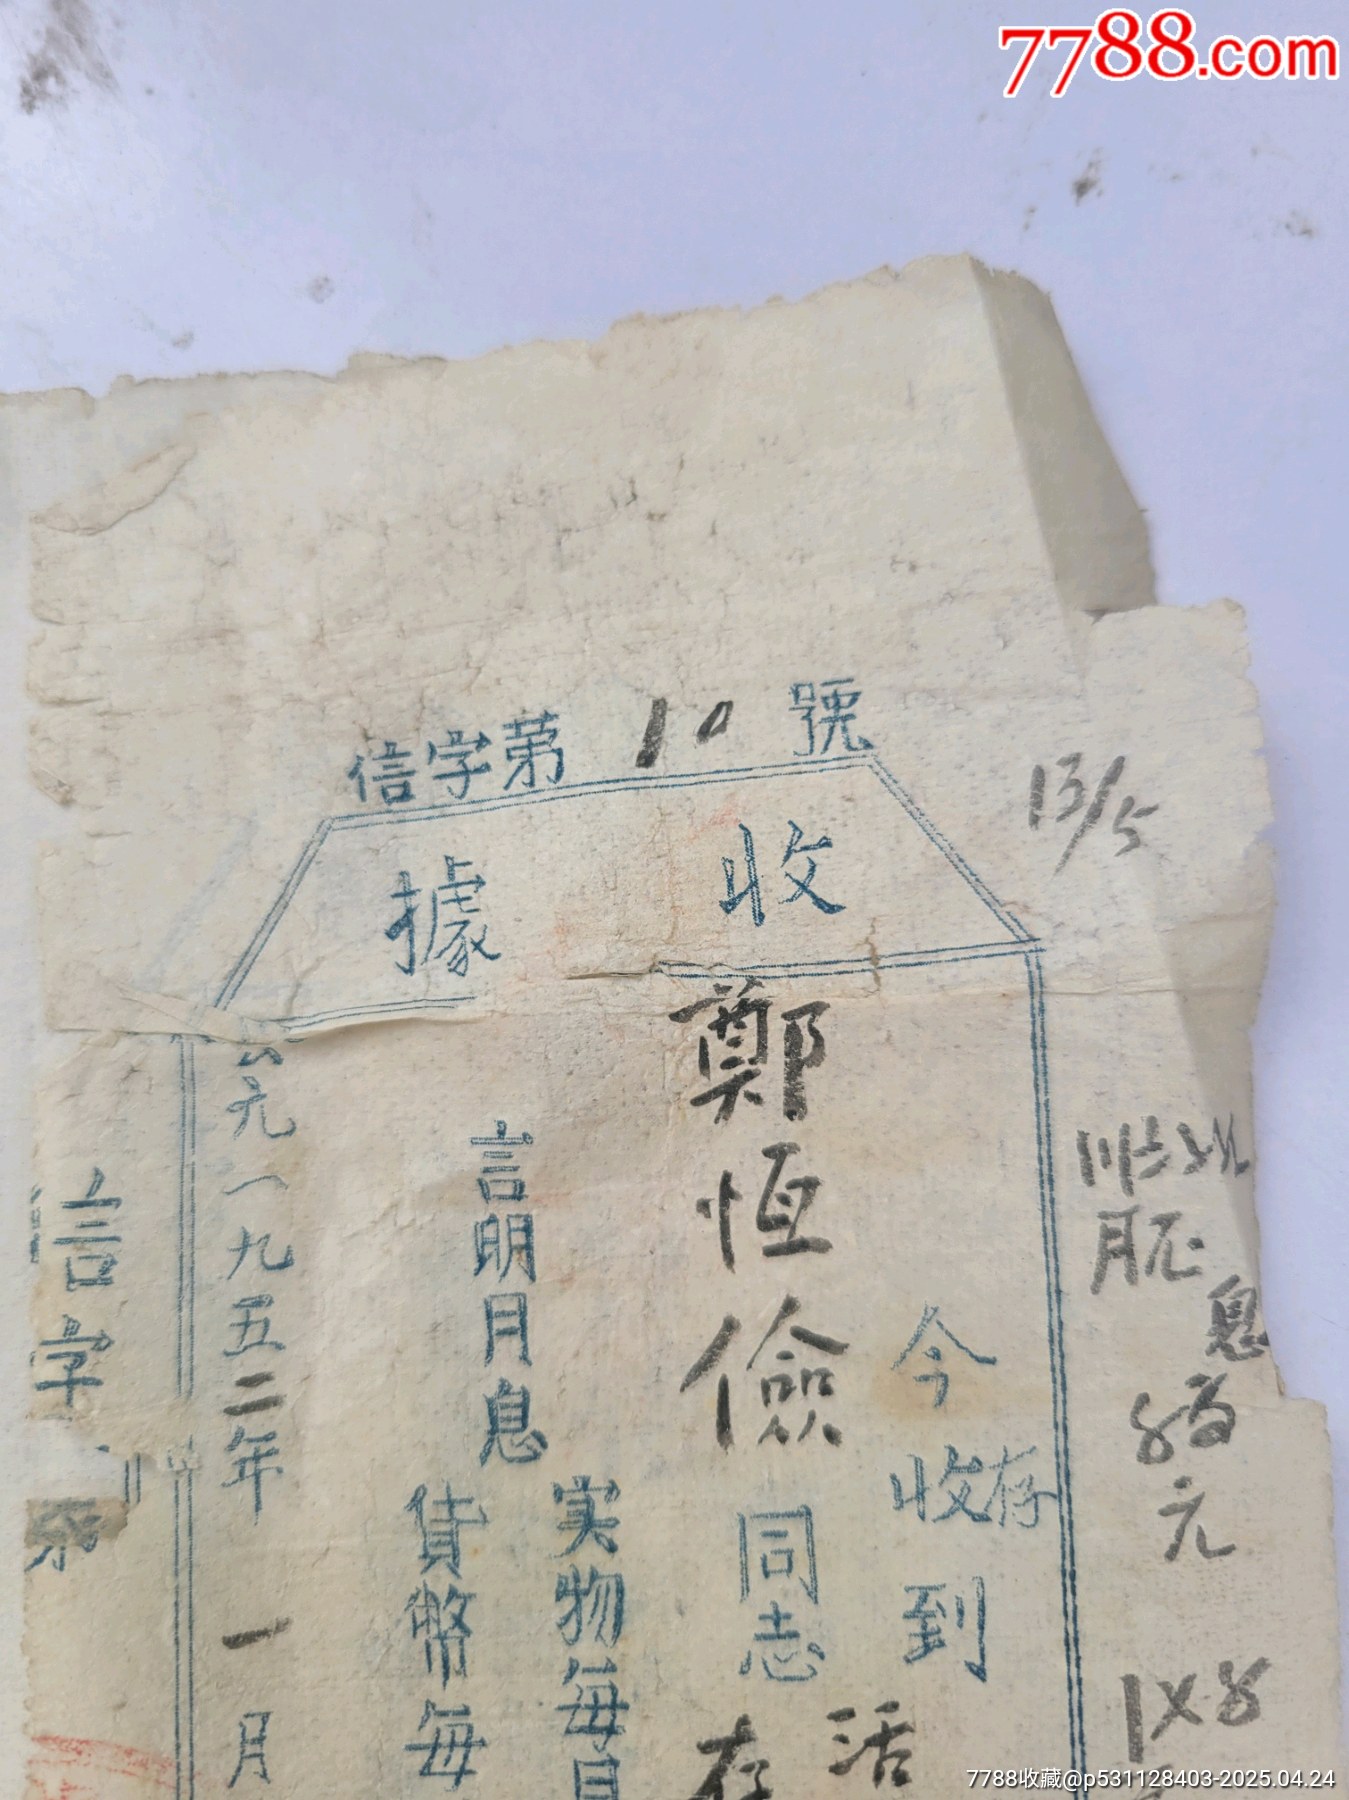 7788.com
信字第10號
收據
13/5
息
元
今收到
存
鄭恒儉同志
活
存
言明月息
实物每月
貨幣每
公元一九五二年一月
信字
7788收藏@p531128403-2025.04.24